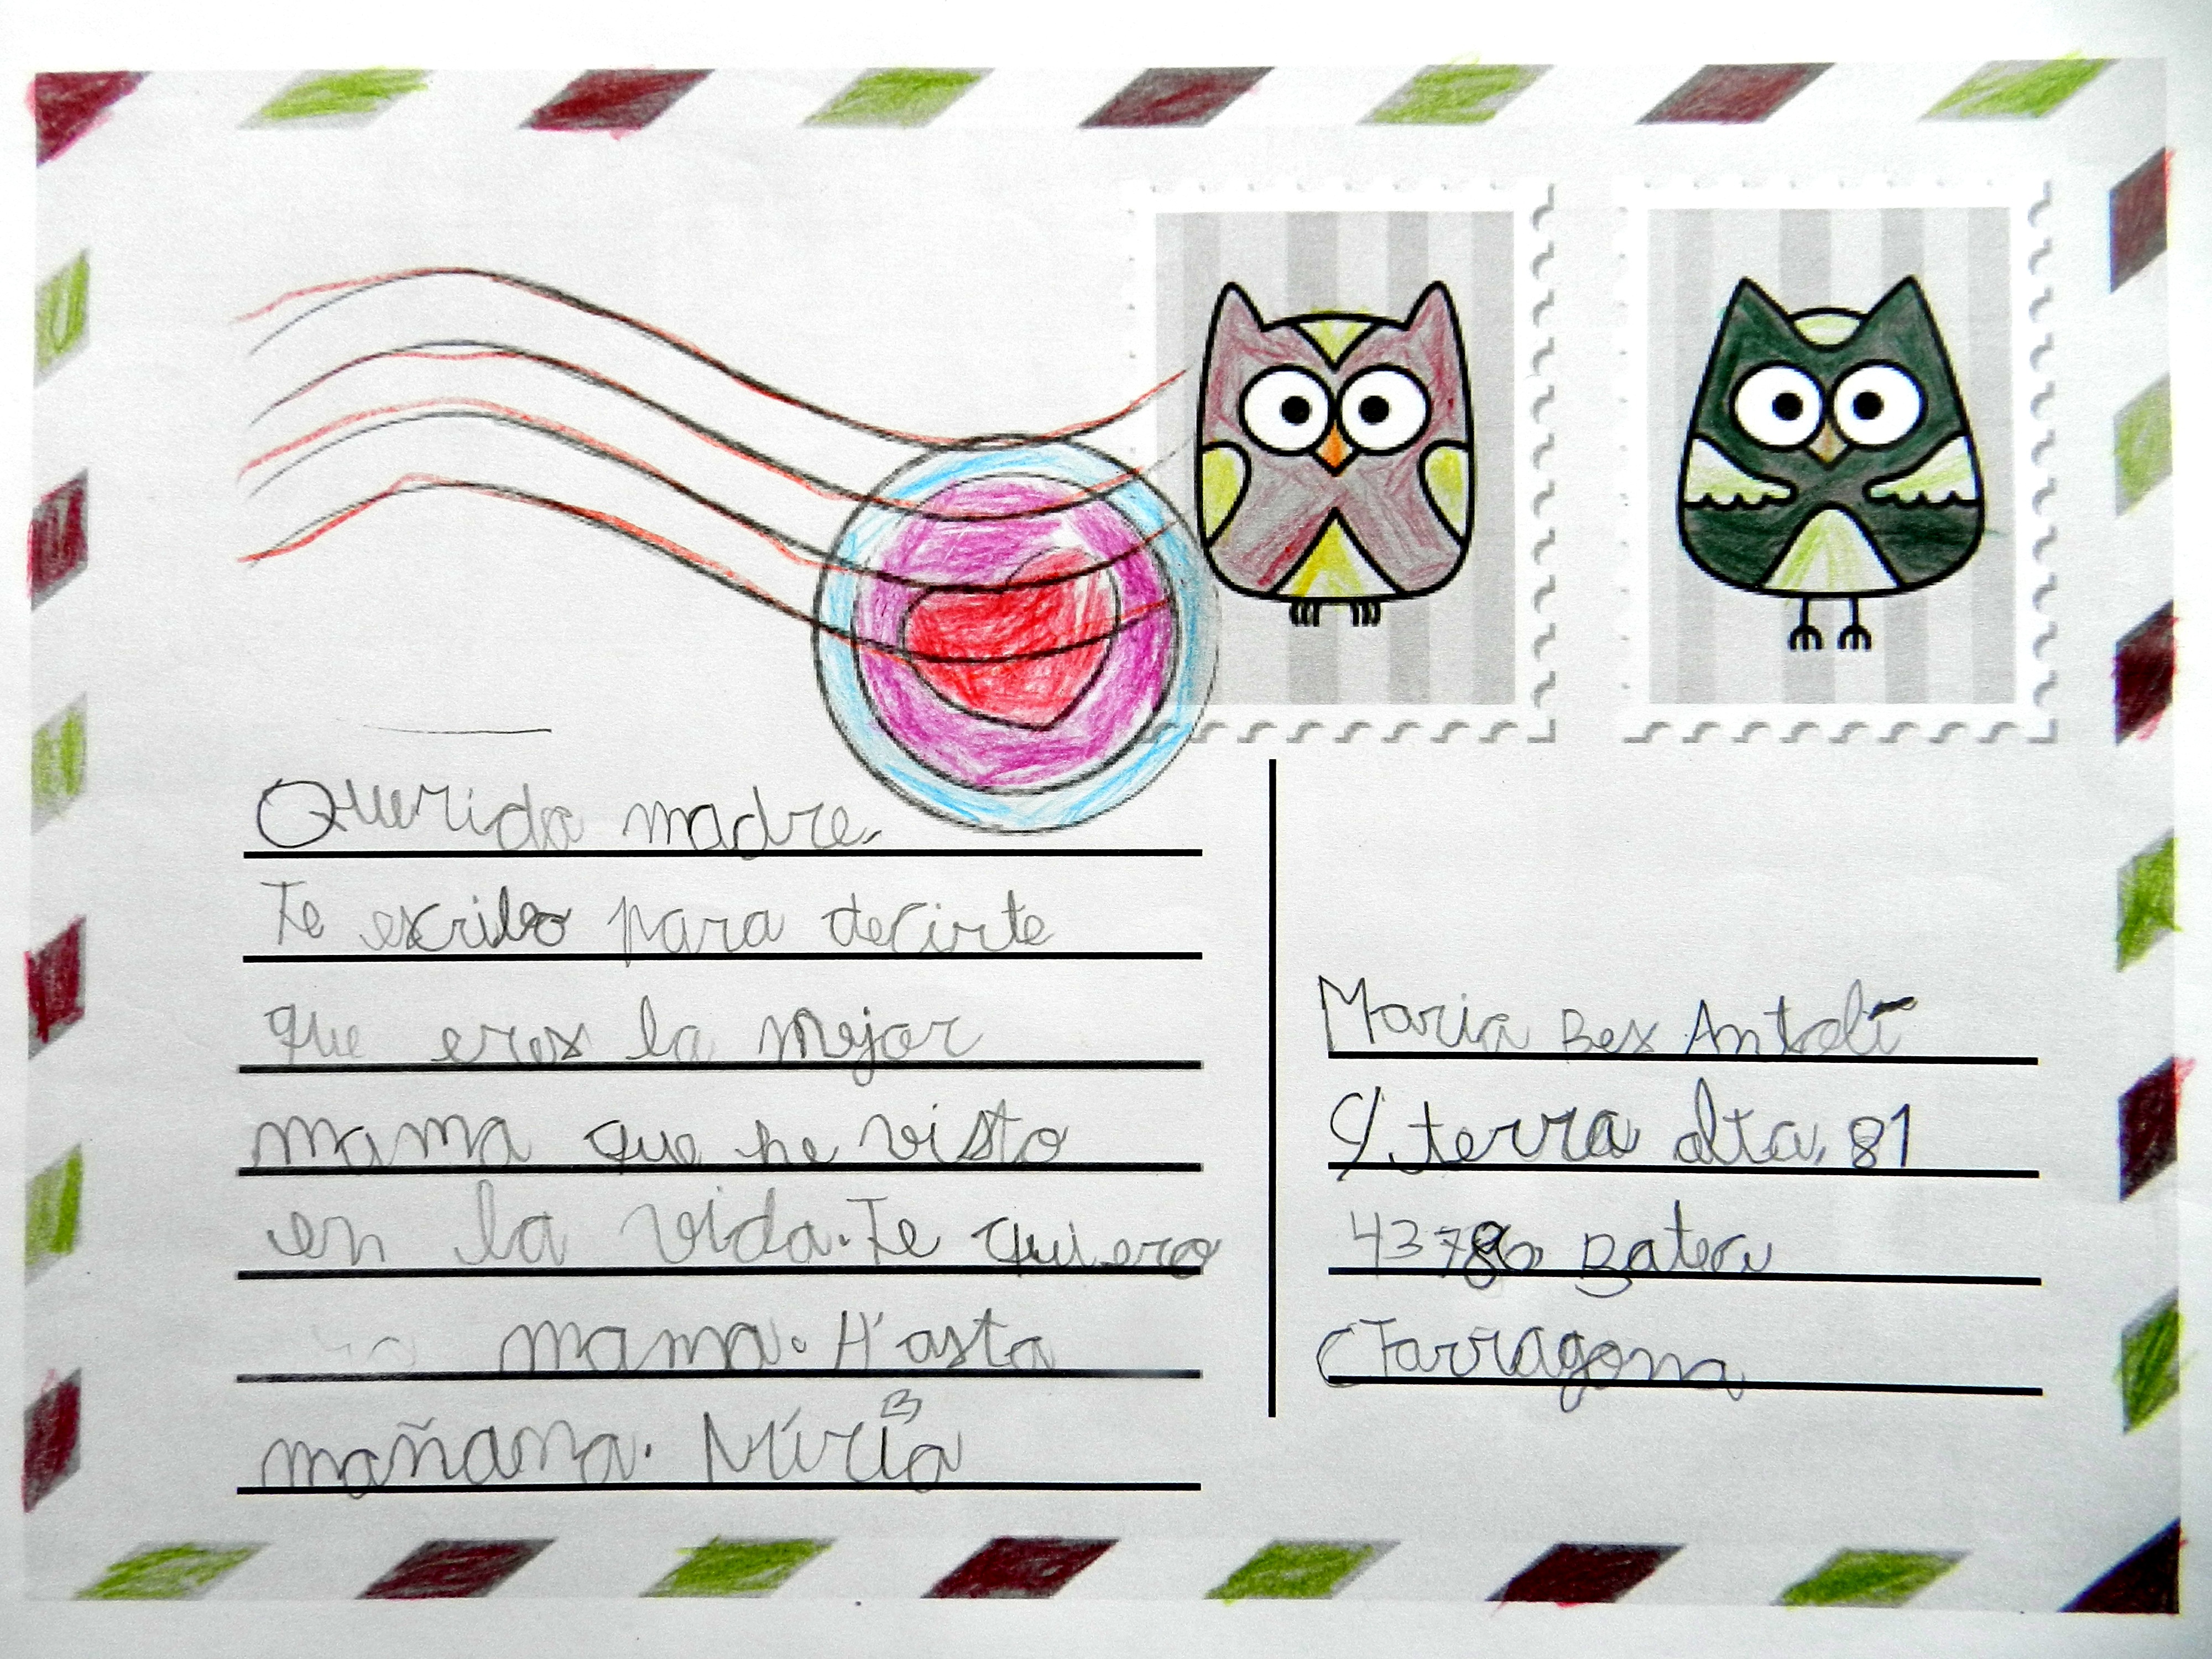 Querida madre.
Te escribo para decirte
que eres la mejor
mama que he visto
en la vida. Te quiero
mama. H'asta
mañana. Núria
Maria Bex Antolí
C/ terra alta, 81
43786 Batea
(Tarragona